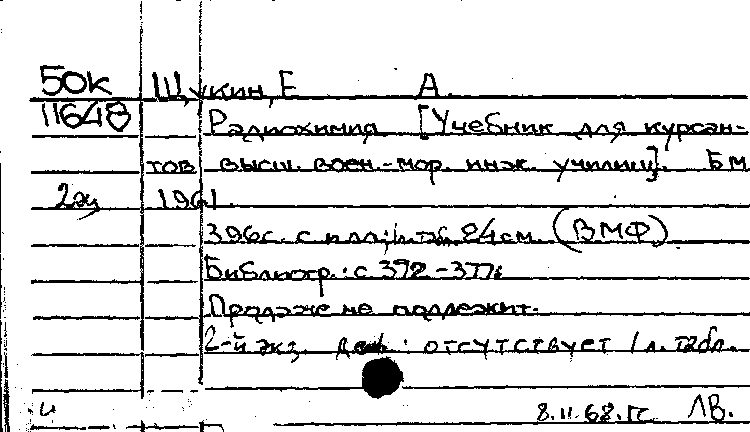 50к Щукин, Е А.
11648 Радиохимия [Учебник для курсан-
тов высш. воен.-мор. инж. училищ]. БМ
2эк 1961.
396с. с илл; 1л. табл. 24см. (ВМФ)
Библиогр.: с 392-377;
Продаже не подлежит.
2-й экз. деф: отсутствует 1 л. табл.
и 8.II.68.гг ЛВ.